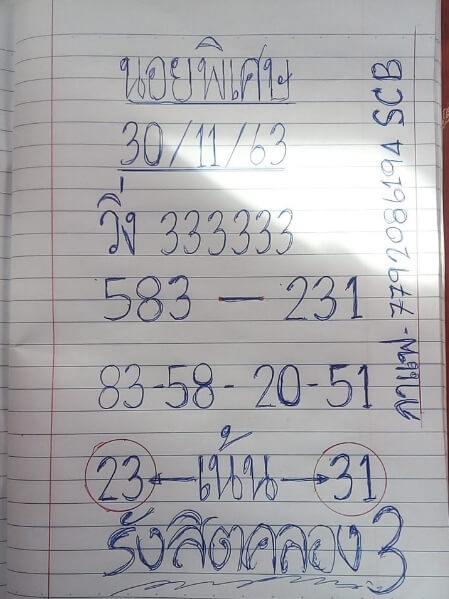 นอยพิเศษ
30/11/63
วิ่ง 333333
583 — 231
83-58-20-51
23 ← เน้น → 31
รังสิตคลอง 3
7792086194 SCB